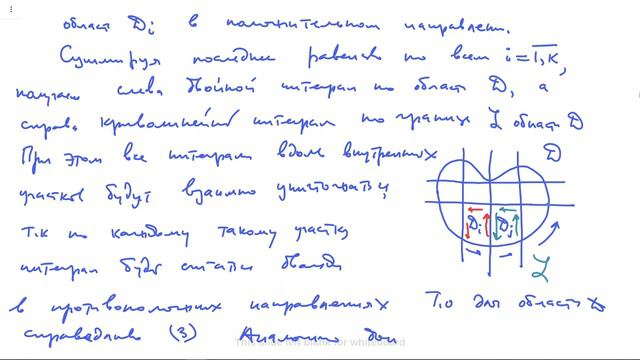 област Dᵢ в положительном направлен.
Суммируя последнее равенсво по всем i = 1,K,
получаем слева двойной интеграл по област D, а
справа криволинейный интеграл по границе L област D
При этом все интегралы вдоль внутренних
D
участков будут взаимно уничтожаться,
Dᵢ Dⱼ
т.к по каждому такому участку
интеграл буде считатся дважды
L
в противоположных направлениях
Т.о для област D
справедливо (3)
This slide left blank for whiteboard